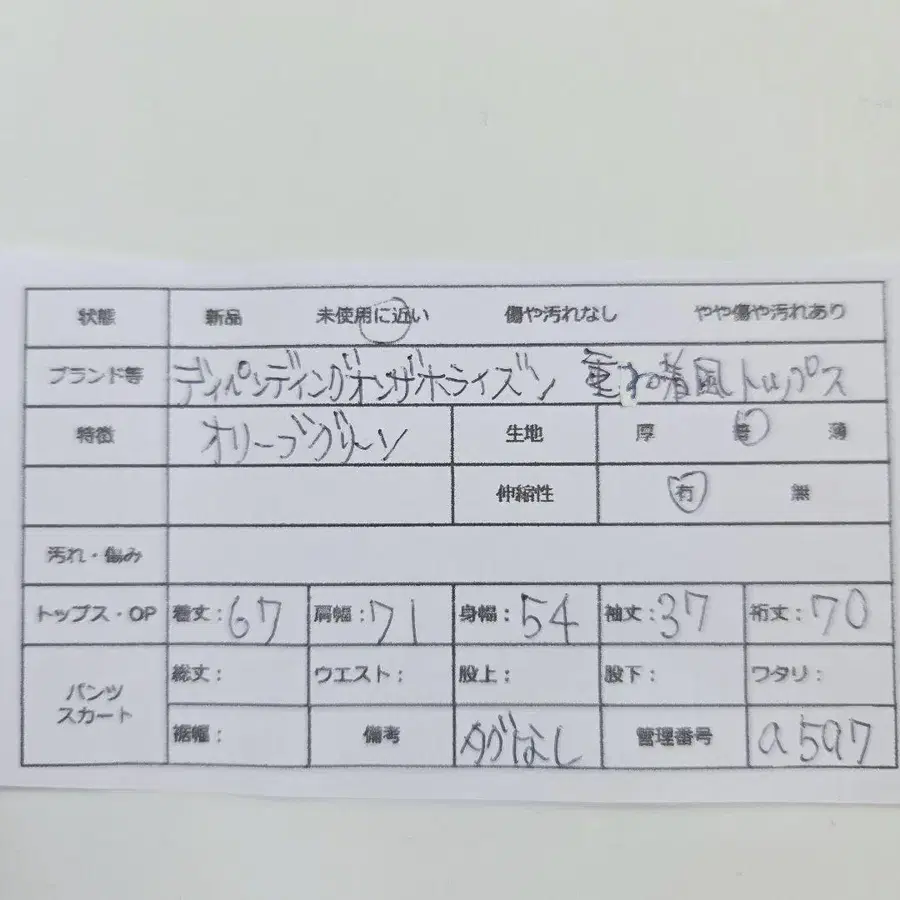 状態 新品 未使用に近い 傷や汚れなし やや傷や汚れあり
ブランド等 ディペンディングオンザホライズン 重ね着風トップス
特徴 オリーブグリーン 生地 厚 普 薄
伸縮性 有 無
汚れ・傷み
トップス・OP 着丈：67 肩幅：71 身幅：54 袖丈：37 裄丈：70
パンツ
スカート
総丈： ウエスト： 股上： 股下： ワタリ：
裾幅： 備考 タグなし 管理番号 a597